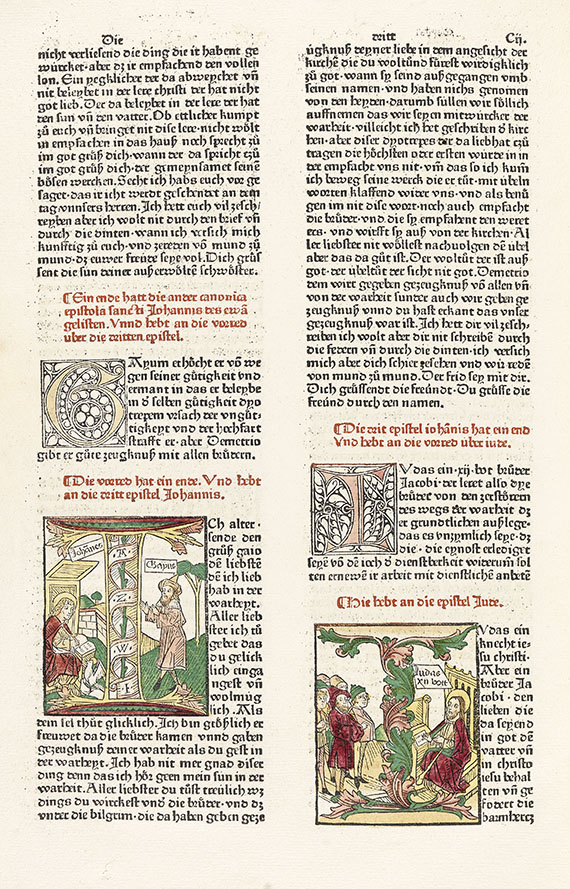 Die
nicht verliesend die ding die ir habent ge
würcket · aber dz ir empfachend den vollen
lon. Ein yegklicher der da abweychet vñ
nit beleybet in der lere christi der hat nicht
got lieb. Der da beleybet in der lere der hat
den sun vñ den vatter. Ob ettlicher kumpt
zů euch vñ bringet nit dise lere · nicht wölt
in empfachen in das hauß noch sprecht zů
im got grüß dich · wann der da spricht zů
im got grüß dich · der gemeynsamet seinē
bösen wercken. Secht ich habs euch vor ge
saget · das ir icht werdt geschendet an dem
tag vnsers herren. Ich hett euch vil zesch/
reyben aber ich wolt nit durch den brief vñ
durch die dinten · wann ich versich mich
künfftig zů euch · vnd zereden vō mund zů
mund · dz euwer freüde seye vol. Dich grüs
sent die sun deiner außerwölten schwöster.
¶Ein ende hatt die ander canonica
epistola sancti Johannis des ewā
gelisten. Vnnd hebt an die vorred
über die dritten epistel.
GAyum erhöcht er vō we
gen seiner gütigkeit vnd
ermanet in das er beleybe
in d̉ selben gütigkeit dyo
trepem vrsach der vngüt
tigkeyt vnd der hochfart
strafft er · aber Demetrio
gibt er gůte zeügknuß mit allen brüdern.
¶Die vorred hat ein ende. Vnd hebt
an die dritt epistel Johannis.
Johānes
Gayus
ICh alter ·
sende den
grüß gaio
dē liebstē
dē ich lieb
hab in der
warheyt.
Aller lieb
ster ich tů
gebet das
du gelick
lich einga
ngest vñ
wolmüg
lich. Als
dein sel thůt glicklich. Ich bin gröslich er
freuwet da die brůder kamen vnnd gaben
gezeugknuß deiner warheit als du gest in
der warheyt. Ich hab nit mer gnad diser
ding denn das ich hör geen mein sun in der
warheit. Aller liebster du tůst treülich wz
dings du wirckest vnd̉ die brůder · vnd dz
vnder die bilgrin · die da haben geben geze
dritt
Cij.
ügknuß deyner liebe in dem angesicht der
kirchē die du woltůnd fürest wirdigklich
zů got · wann sy seind außgegangen vmb
seinen namen · vnd haben nichs genomen
von den heyden · darumb süllen wir söllich
auffnemen das wir seyen mitwürcker der
warheit · villeicht ich het geschriben d̉ kirc
hen · aber diser dyotrepes der da liebhat zů
tragen die höchsten oder ersten würde in in
der empfacht vns nit · vm̄ das so ich kum̄
ich beweg seine werck die er tůt · mit übeln
worten klaffend wider vns · vnd als benü
gen im nit dise wort · noch auch empfacht
die brüder · vnd die sy empfahent den weret
ers · vnd wirfft sy auß von der kirchen. Al
ler liebster nit wöllest nachuolgen dē übel
aber das da gůt ist. Der woltůt der ist auß
got · der übeltůt der sicht nit got. Demetrio
dem wirt gegeben gezeugknuß vō allen vñ
von der warheit sunder auch wir geben ge
zeugknuß vnnd du hast erkant das vnser
gezeugknuß war ist. Ich hett dir vil zesch/
reiben ich wolt aber dir nit schreibē durch
die federn vñ durch die dinten · ich versich
mich aber dich schier zesehen vnd wir redē
von mund zů mund. Der frid sey mit dir.
Dich grüssend die freünd. Du grüsse die
freünd durch den namen.
¶Die drit epistel iohānis hat ein end
Vnd hebt an die vorred über iude.
IVdas ein · xij · bot brůder
Jacobi · der leret also dye
brůder von den zerstörern
des wegs der warheit dz
er grundtlichen außlege ·
das es vnzymlich seye · dz
die · die eynost erlediget
seyen vō dē ioch d̉ dienstberkeit widerum̄ sol
ten ernewē ir arbeit mit dienstliche anbetē
¶Hie hebt an die epistel Jude.
Judas
xij bott
IVdas ein
knecht ie/
su christi ·
Aber ein
brůder Ja
cobi · den
lieben die
da seyend
in got dē
vatter vñ
in christo
iesu behal
ten vñ ge
fodert die
barmhercz